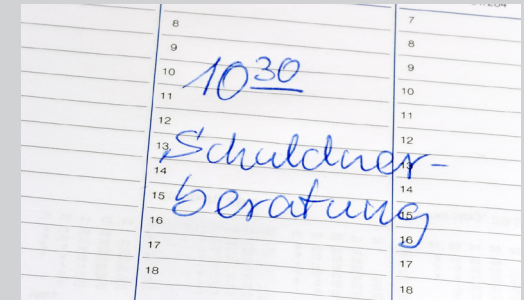 8
9
10
11
12
13
14
15
16
17
18
10 30
Schuldner-
beratung
7
8
9
10
11
12
13
14
15
16
17
18